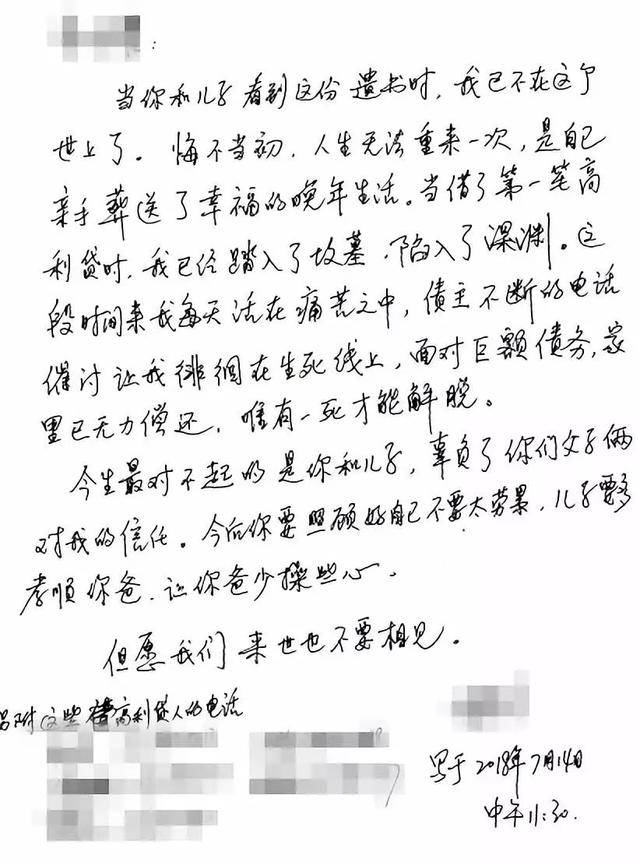 ：
当你和儿子看到这份遗书时，我已不在这个
世上了。悔不当初，人生无法重来一次，是自己
亲手葬送了幸福的晚年生活。当借了第一笔高
利贷时，我已经踏入了坟墓，陷入了深渊。这
段时间来我每天活在痛苦之中，债主不断的电话
催讨让我徘徊在生死线上，面对巨额债务，家
里已无力偿还，唯有一死才能解脱。
今生最对不起的是你和儿子，辜负了你们父子俩
对我的信任。今后你要照顾好自己不要太劳累，儿子要多
孝顺你爸，让你爸少操些心，
但愿我们来世也不要相见。
另附这些借高利贷人的电话
写于2018年7月14日
中午11:30.